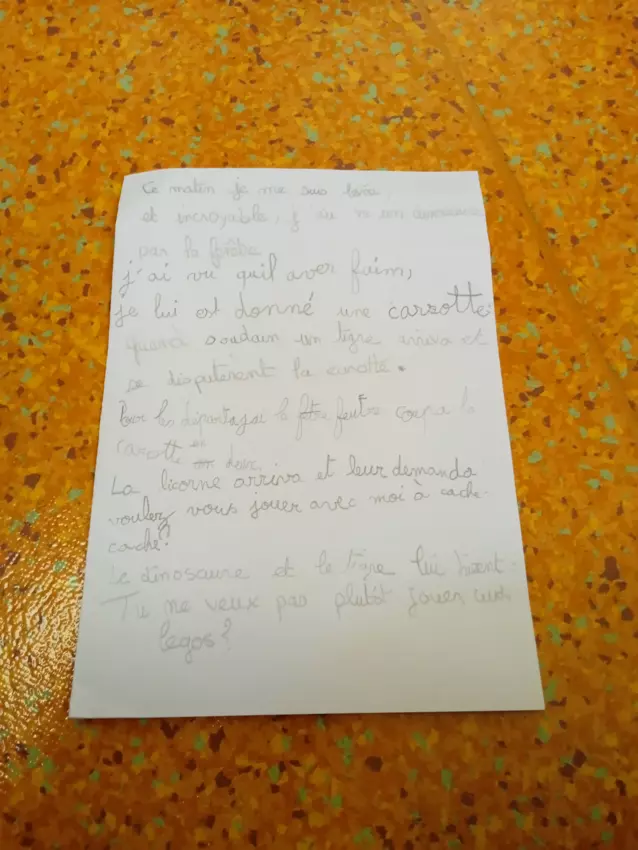 Ce matin je me suis levée,
et incroyable, j ai vu un dinosaure
par la fenêtre
j'ai vu quil aver faim,
je lui est donné une carrotte
quand soudain un tigre arriva et
se disputèrent la carotte.
Pour les départager le feutre coupa la
carotte en deux.
La licorne arriva et leur demanda
voulez vous jouer avec moi à cache-
cache?
Le dinosaure et le tigre lui disent:
Tu ne veux pas plutôt jouer aux
legos?